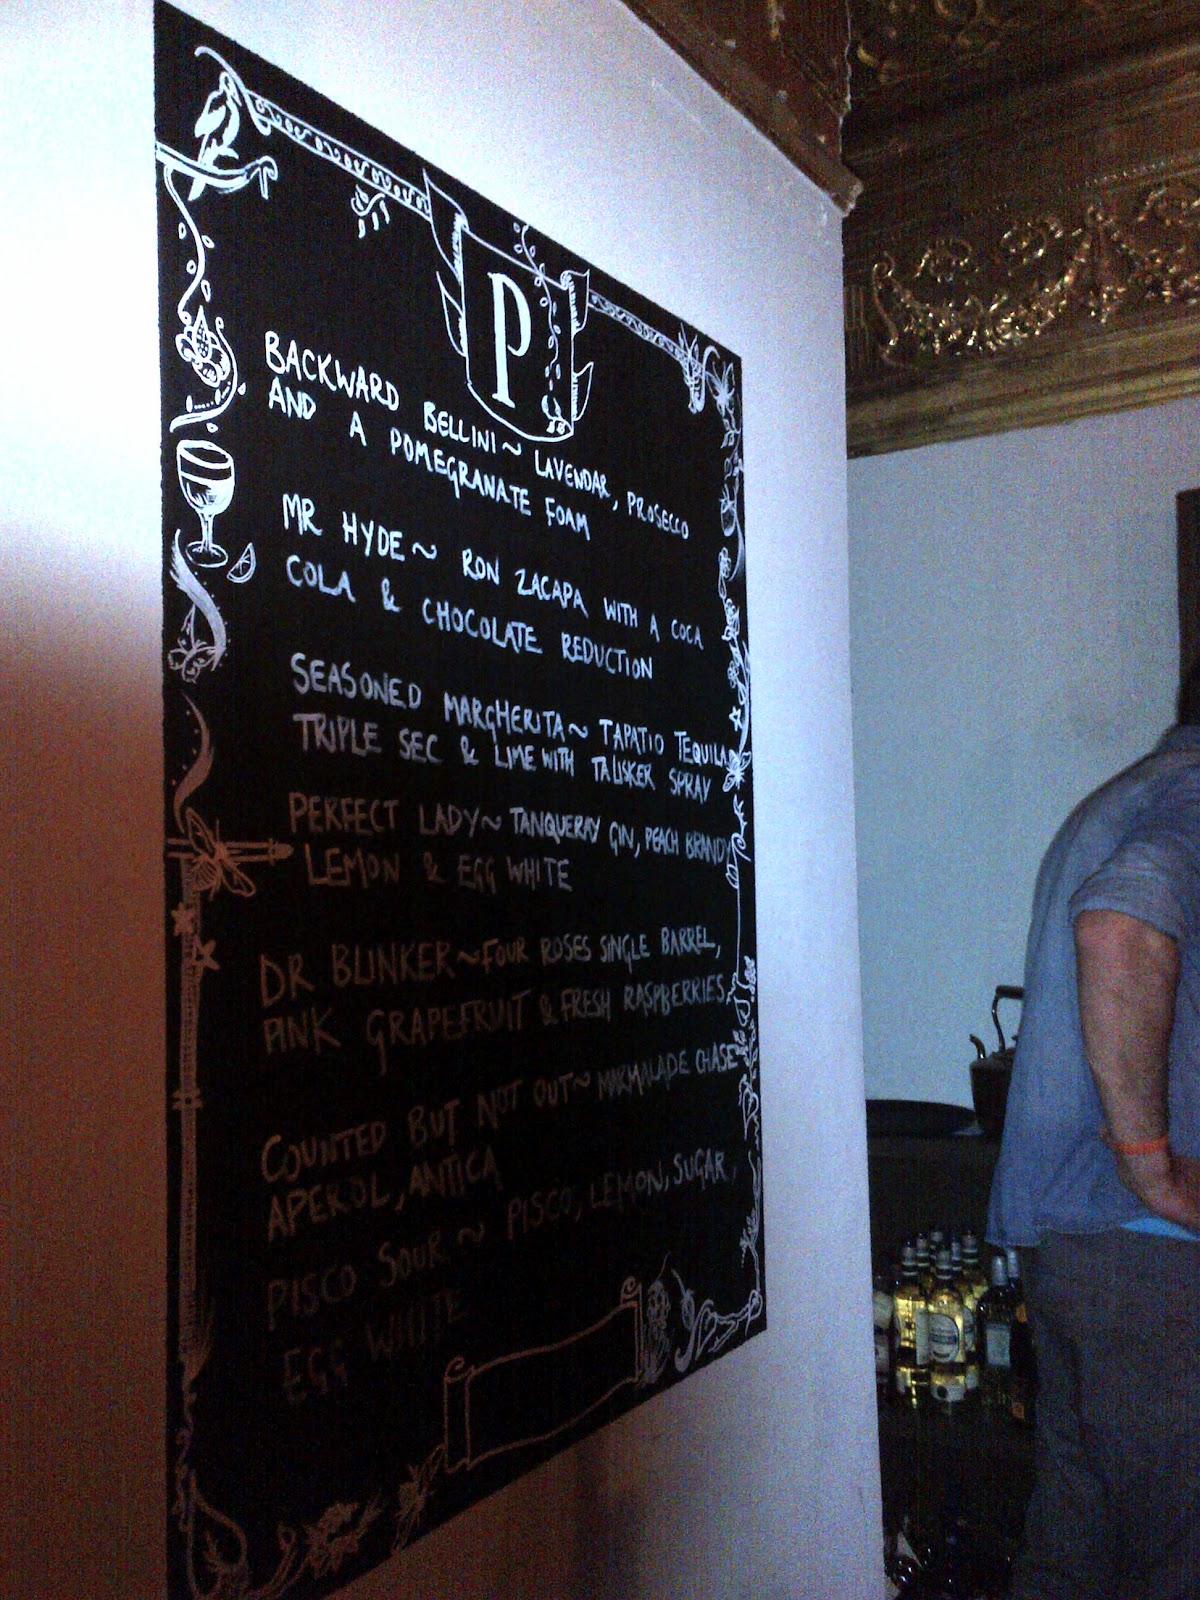 P
BACKWARD BELLINI ~ LAVENDAR, PROSECCO
AND A POMEGRANATE FOAM
MR HYDE ~ RON ZACAPA WITH A COCA
COLA & CHOCOLATE REDUCTION
SEASONED MARGHERITA ~ TAPATIO TEQUILA
TRIPLE SEC & LIME WITH TALISKER SPRAY
PERFECT LADY ~ TANQUERAY GIN, PEACH BRANDY
LEMON & EGG WHITE
DR BLINKER ~ FOUR ROSES SINGLE BARREL,
PINK GRAPEFRUIT & FRESH RASPBERRIES
COUNTED BUT NOT OUT ~ MARMALADE CHASE
APEROL, ANTICA
PISCO SOUR ~ PISCO, LEMON, SUGAR,
EGG WHITE